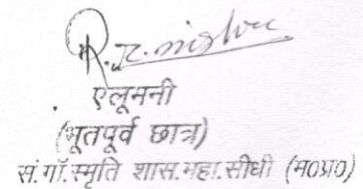 R. K. Mishra
एलूमनी
(भूतपूर्व छात्र)
सं.गाँ.स्मृति शास.महा.सीधी (म०प्र०)